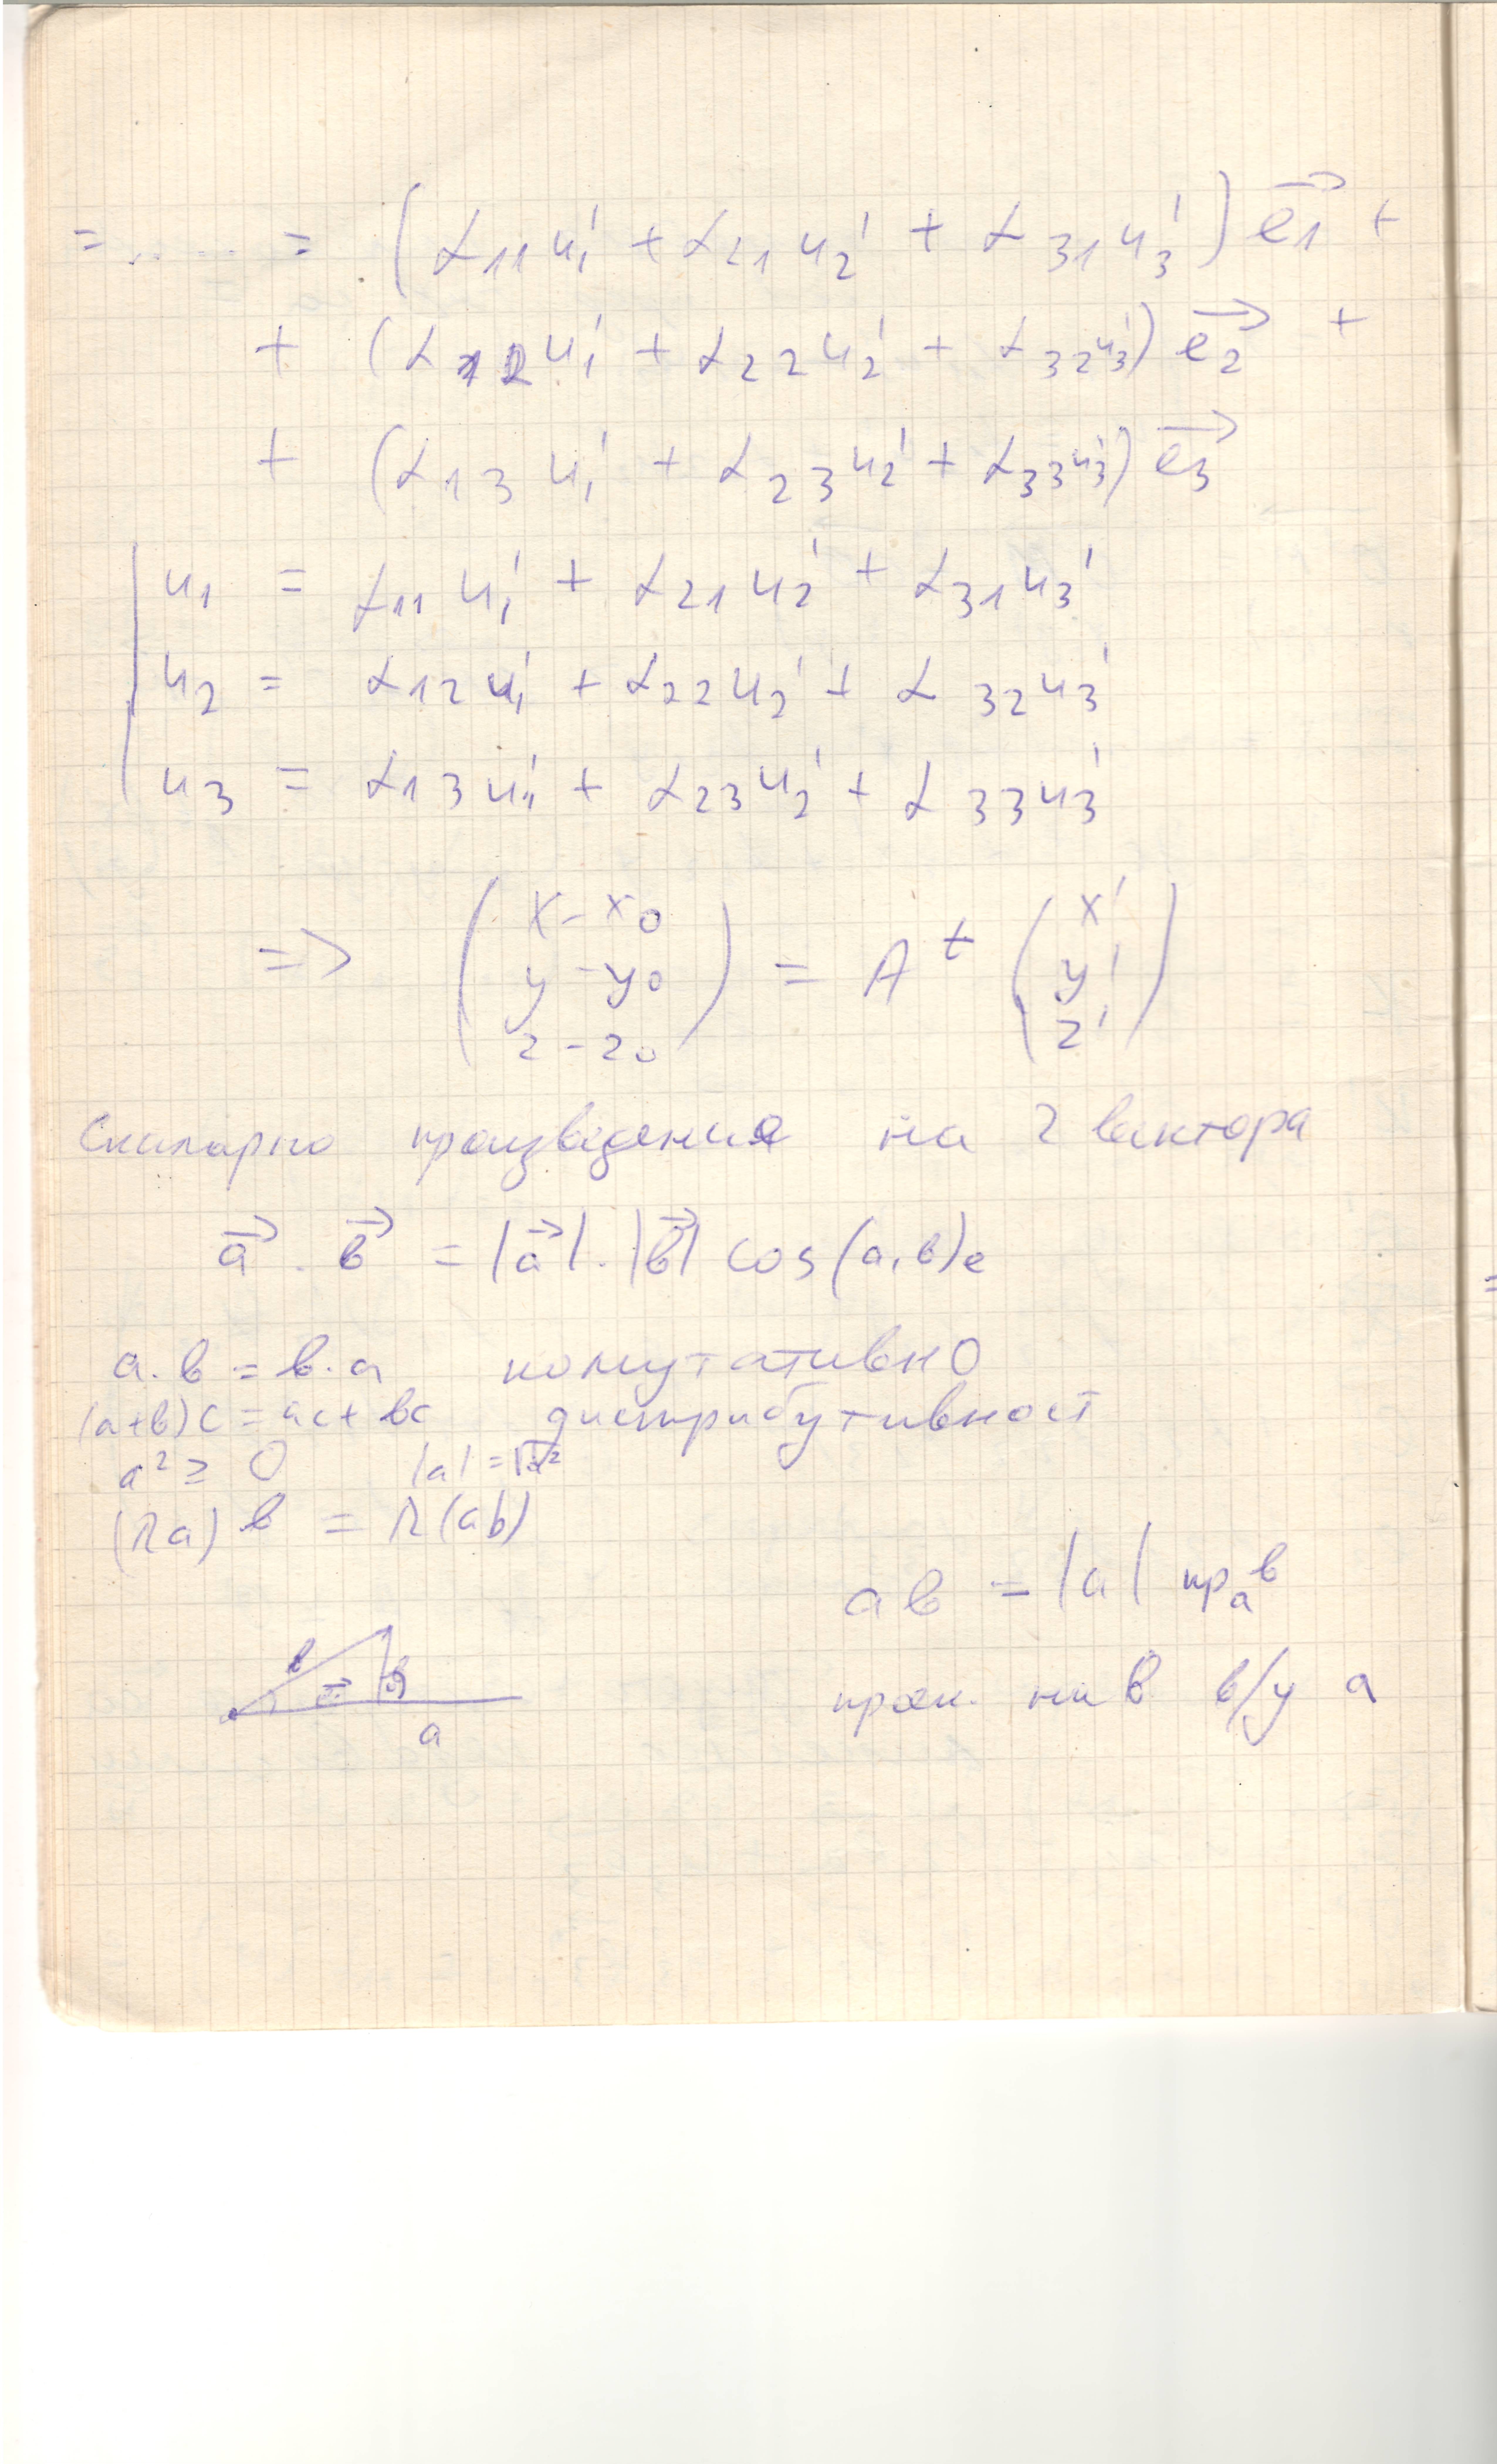 = ...... = (α₁₁u₁' + α₂₁u₂' + α₃₁u₃') e₁⃗ +
+ (α₁₂u₁' + α₂₂u₂' + α₃₂u₃') e₂⃗ +
+ (α₁₃u₁' + α₂₃u₂' + α₃₃u₃') e₃⃗
u₁ = α₁₁u₁' + α₂₁u₂' + α₃₁u₃'
u₂ = α₁₂u₁' + α₂₂u₂' + α₃₂u₃'
u₃ = α₁₃u₁' + α₂₃u₂' + α₃₃u₃'
=> (x - x₀
y - y₀
z - z₀) = Aᵗ (x'
y'
z')
Скаларно произведение на 2 вектора
a⃗ . b⃗ = |a⃗| . |b⃗| cos(a,b)e
a.b = b.a комутативно
(a+b)c = ac + bc дистрибутивност
a² ≥ 0 |a| = √a²
(λa)b = λ(ab)
ab = |a| прₐb
b
a
проек. на b в/у a